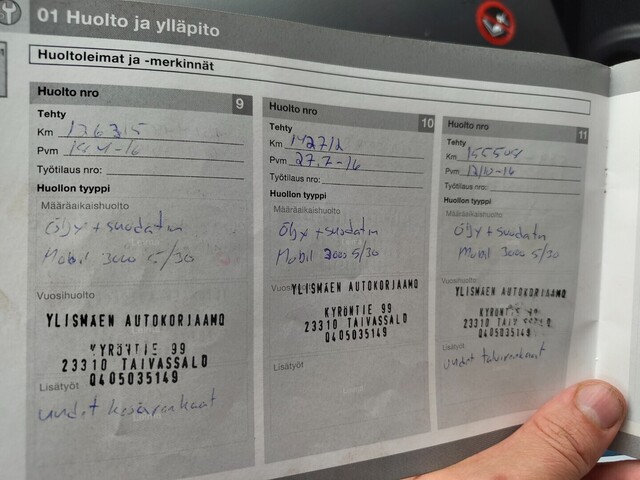 01 Huolto ja ylläpito
Huoltoleimat ja -merkinnät
Huolto nro 9
Tehty
Km 126315
Pvm 14.4-16
Työtilaus nro:
Huollon tyyppi
Määräaikaishuolto
Öljy + suodatin
Mobil 3000 5/30
Vuosihuolto
YLISMÄEN AUTOKORJAAMO
KYRÖNTIE 99
23310 TAIVASSALO
0405035149
Lisätyöt
uudet kesärenkaat
Huolto nro 10
Tehty
Km 142712
Pvm 27.7-16
Työtilaus nro:
Huollon tyyppi
Määräaikaishuolto
Öljy + suodatin
Mobil 3000 5/30
YLISMÄEN AUTOKORJAAMO
KYRÖNTIE 99
23310 TAIVASSALO
0405035149
Lisätyöt
Huolto nro 11
Tehty
Km
Pvm 12/10-16
Työtilaus nro:
Huollon tyyppi
Määräaikaishuolto
Öljy + suodatin
Mobil 3000 5/30
Vuosihuolto
YLISMÄEN AUTOKORJAAMO
KYRÖNTIE 99
23310
0405035149
Lisätyöt
uudet talvirenkaat